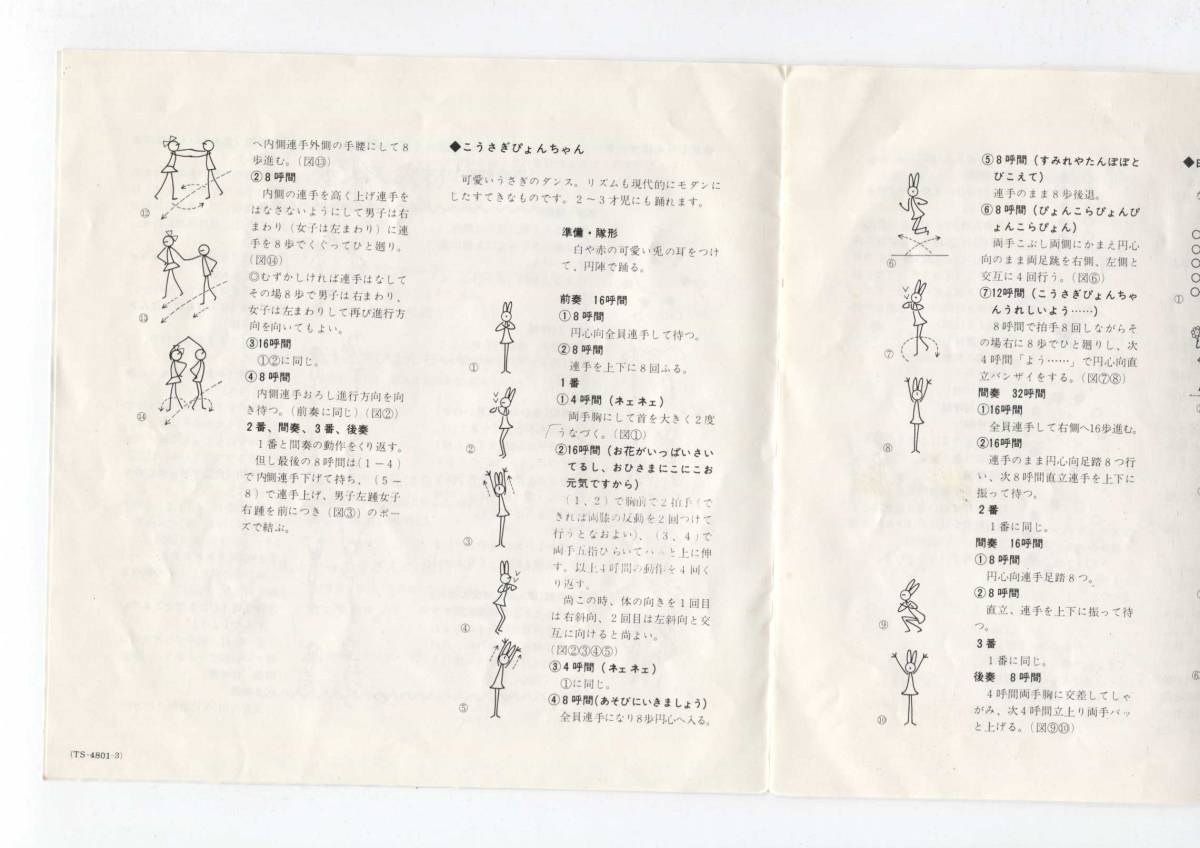 へ内側連手外側の手腰にして8
歩進む。(図⑬)
②8呼間
内側の連手を高く上げ連手を
はなさないようにして男子は右
まわり(女子は左まわり)に連
手を8歩でくぐってひと廻り。
(図⑭)
◎むずかしければ連手はなして
その場8歩で男子は右まわり、
女子は左まわりして再び進行方
向を向いてもよい。
③16呼間
①②に同じ。
④8呼間
内側連手おろし進行方向を向
き待つ。(前奏に同じ)(図②)
2番、間奏、3番、後奏
1番と間奏の動作をくり返す。
但し最後の8呼間は(1-4)
で内側連手下げて持ち、(5-
8)で連手上げ、男子左踵女子
右踵を前につき(図③)のポー
ズで結ぶ。
⑫
⑬
⑭
(TS-4801-3)
◆こうさぎぴょんちゃん
可愛いうさぎのダンス。リズムも現代的にモダンに
したすてきなものです。2~3才児にも踊れます。
準備・隊形
白や赤の可愛い兎の耳をつけ
て、円陣で踊る。
前奏 16呼間
①8呼間
円心向全員連手して待つ。
②8呼間
連手を上下に8回ふる。
1番
①4呼間(ネェネェ)
両手胸にして首を大きく2度
うなづく。(図①)
②16呼間(お花がいっぱいさい
てるし、おひさまにこにこお
元気ですから)
(1、2)で胸前で2拍手(で
きれば両膝の反動を2回つけて
行うとなおよい)、(3、4)で
両手五指ひらいてパッと上に伸
す。以上4呼間の動作を4回く
り返す。
尚この時、体の向きを1回目
は右斜向、2回目は左斜向と交
互に向けると尚よい。
(図②③④⑤)
③4呼間(ネェネェ)
①に同じ。
④8呼間(あそびにいきましょう)
全員連手になり8歩円心へ入る。
①
②
③
④
⑤
⑤8呼間(すみれやたんぽぽと
びこえて)
連手のまま8歩後退。
⑥8呼間(ぴょんこらぴょんぴ
ょんこらぴょん)
両手こぶし両側にかまえ円心
向のまま両足跳を右側、左側と
交互に4回行う。(図⑥)
⑦12呼間(こうさぎぴょんちゃ
んうれしいよう……)
8呼間で拍手8回しながらそ
の場右に8歩でひと廻りし、次
4呼間「よう……」で円心向直
立バンザイをする。(図⑦⑧)
間奏 32呼間
①16呼間
全員連手して右側へ16歩進む。
②16呼間
連手のまま円心向足踏8つ行
い、次8呼間直立連手を上下に
振って待つ。
2番
1番に同じ。
間奏 16呼間
①8呼間
円心向連手足踏8つ。
②8呼間
直立、連手を上下に振って待
つ。
3番
1番に同じ。
後奏 8呼間
4呼間両手胸に交差してしゃ
がみ、次4呼間立上り両手パッ
と上げる。(図⑨⑩)
⑥
⑦
⑧
⑨
⑩
◆
①